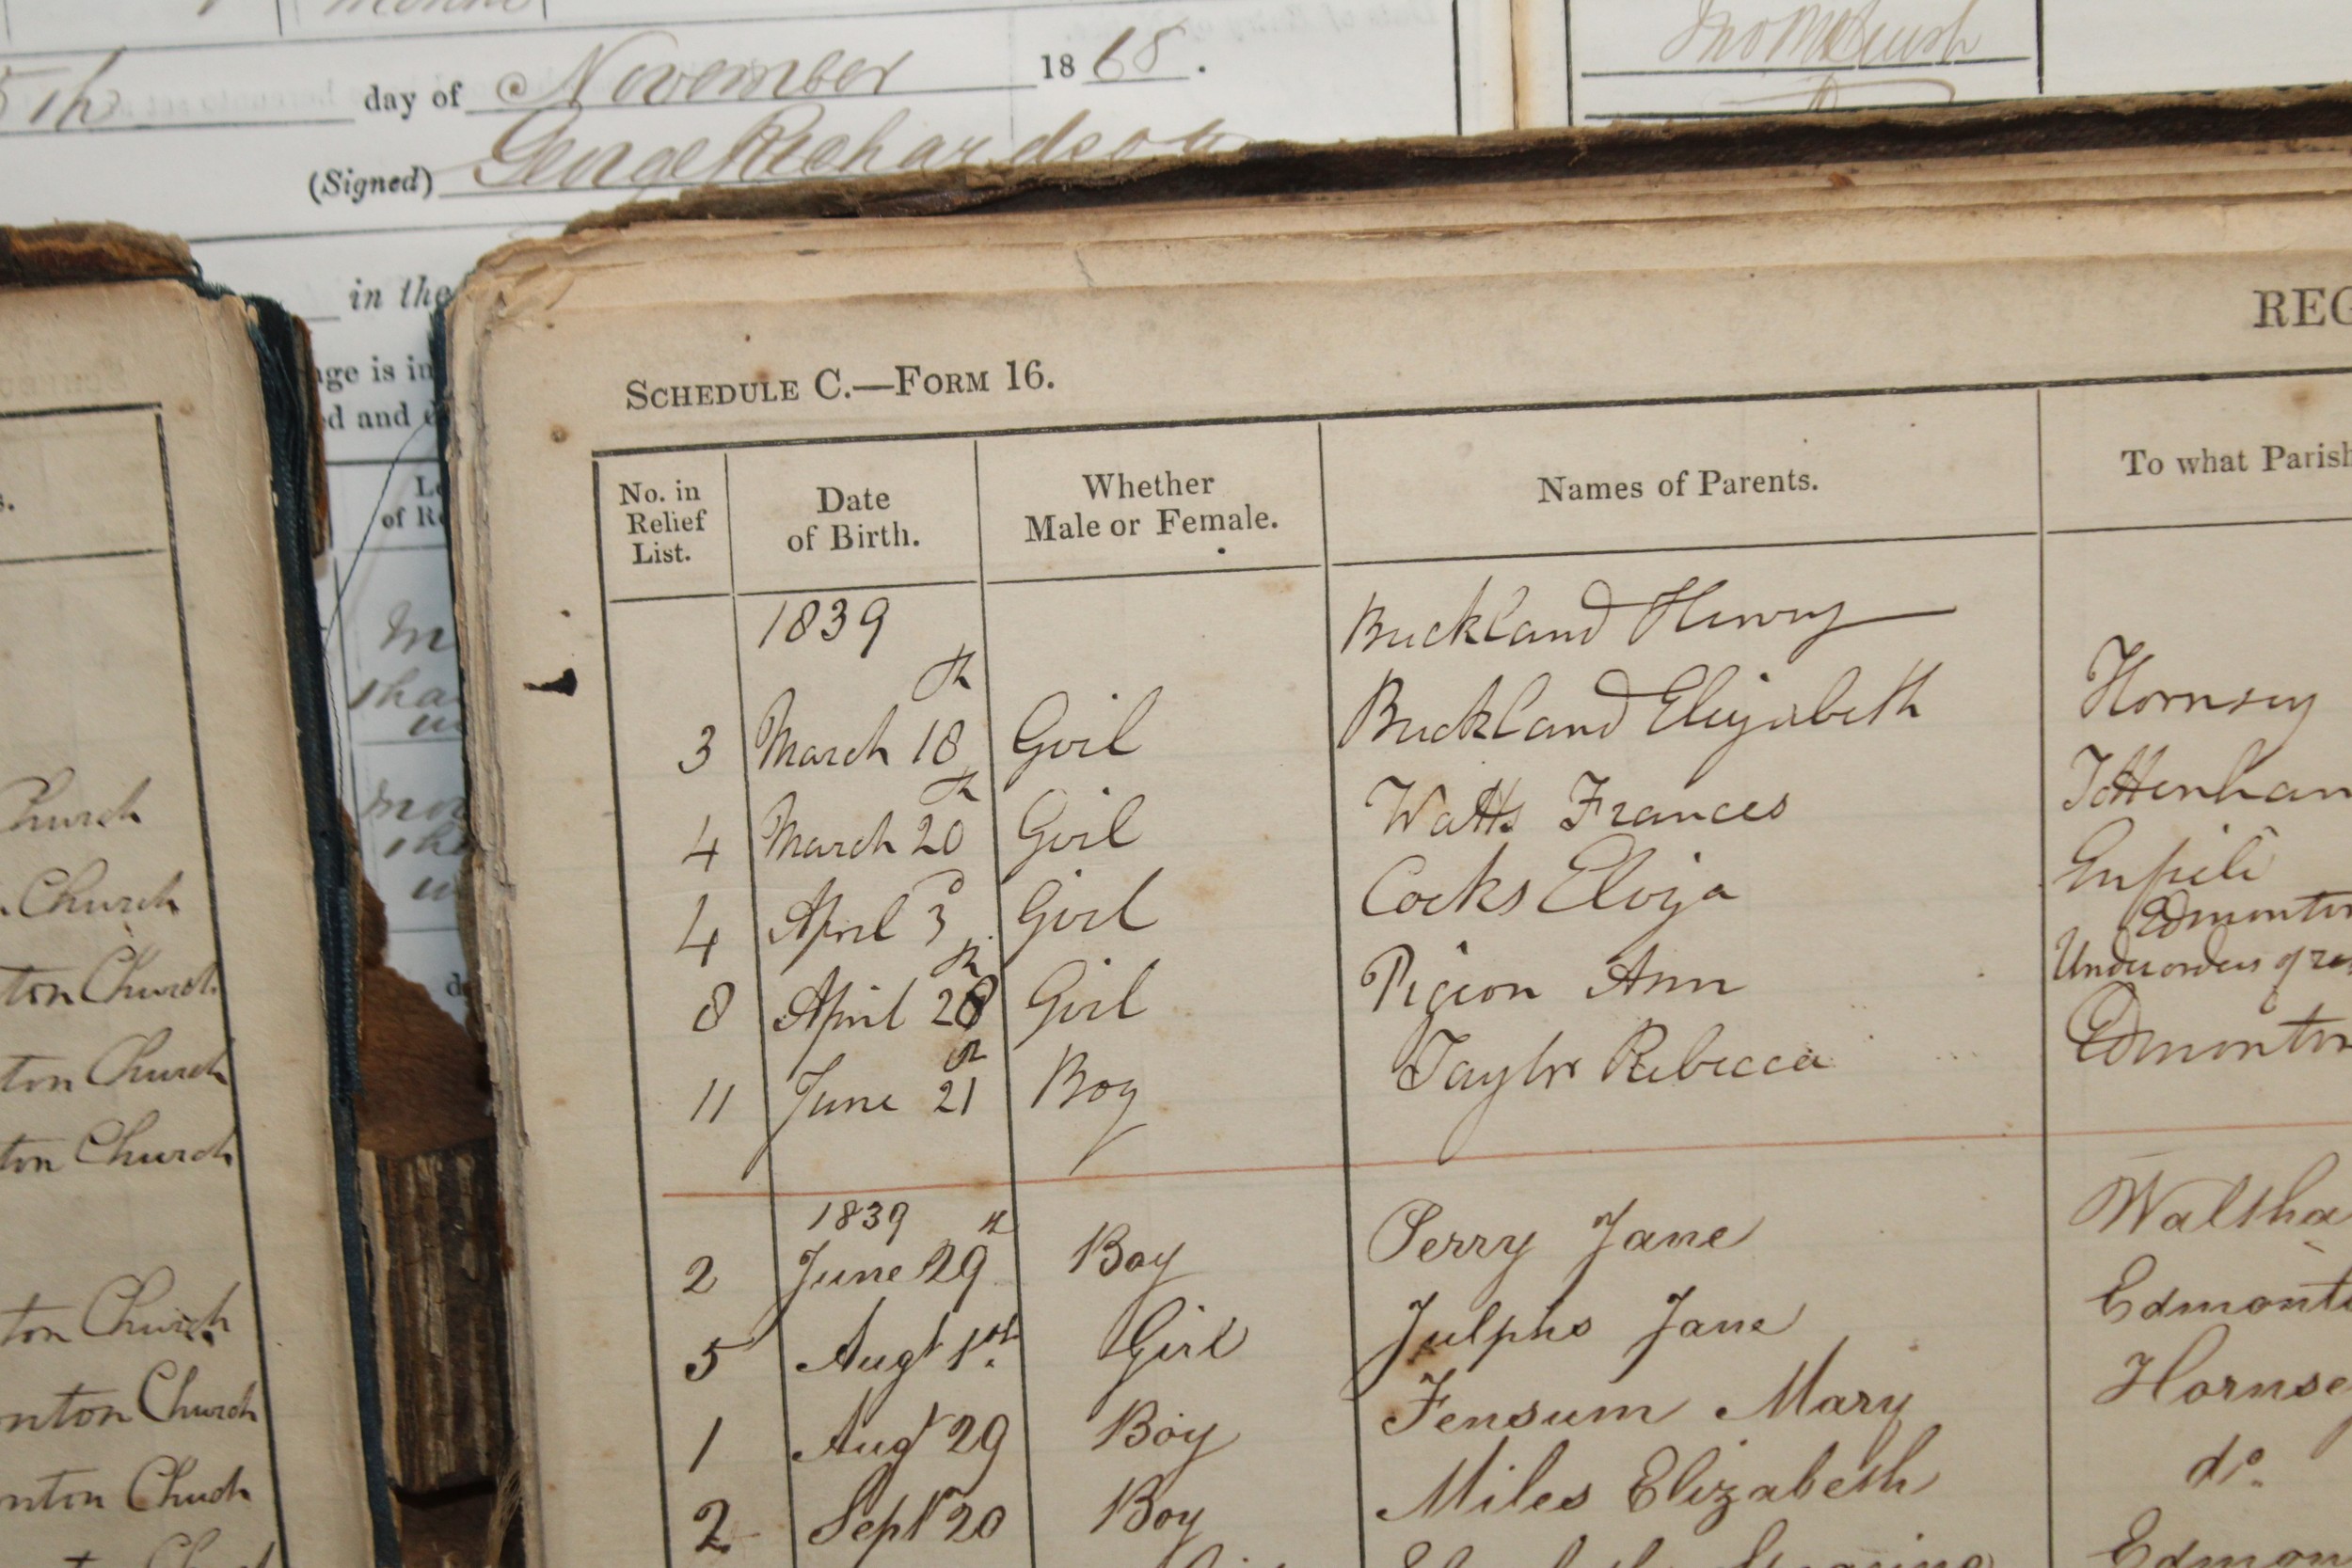 5th day of November 1868.
(Signed) George Richardson
in the
age is in
ed and
of Re
Church
Church
ton Church
ton Church
ton Church
ton Church
nton Church
nton Church
REG
SCHEDULE C.—FORM 16.
No. in Relief List. Date of Birth. Whether Male or Female. Names of Parents. To what Parish
1839 Buckland Henry
3 March 18th Girl Buckland Elizabeth Hornsey
4 March 20th Girl Watts Frances Tottenham
4 April 3d Girl Cocks Eliza Enfield
Edmonton
8 April 28th Girl Pigeon Ann Under orders of
11 June 21 Boy Taylor Rebecca Edmonton
1839
2 June 29th Boy Perry Jane Waltha
5 Augt 1st Girl Julphs Jane Edmont
1 Augt 29 Boy Fensum Mary Hornse
2 Sept 20 Boy Miles Elizabeth do.
Edmon